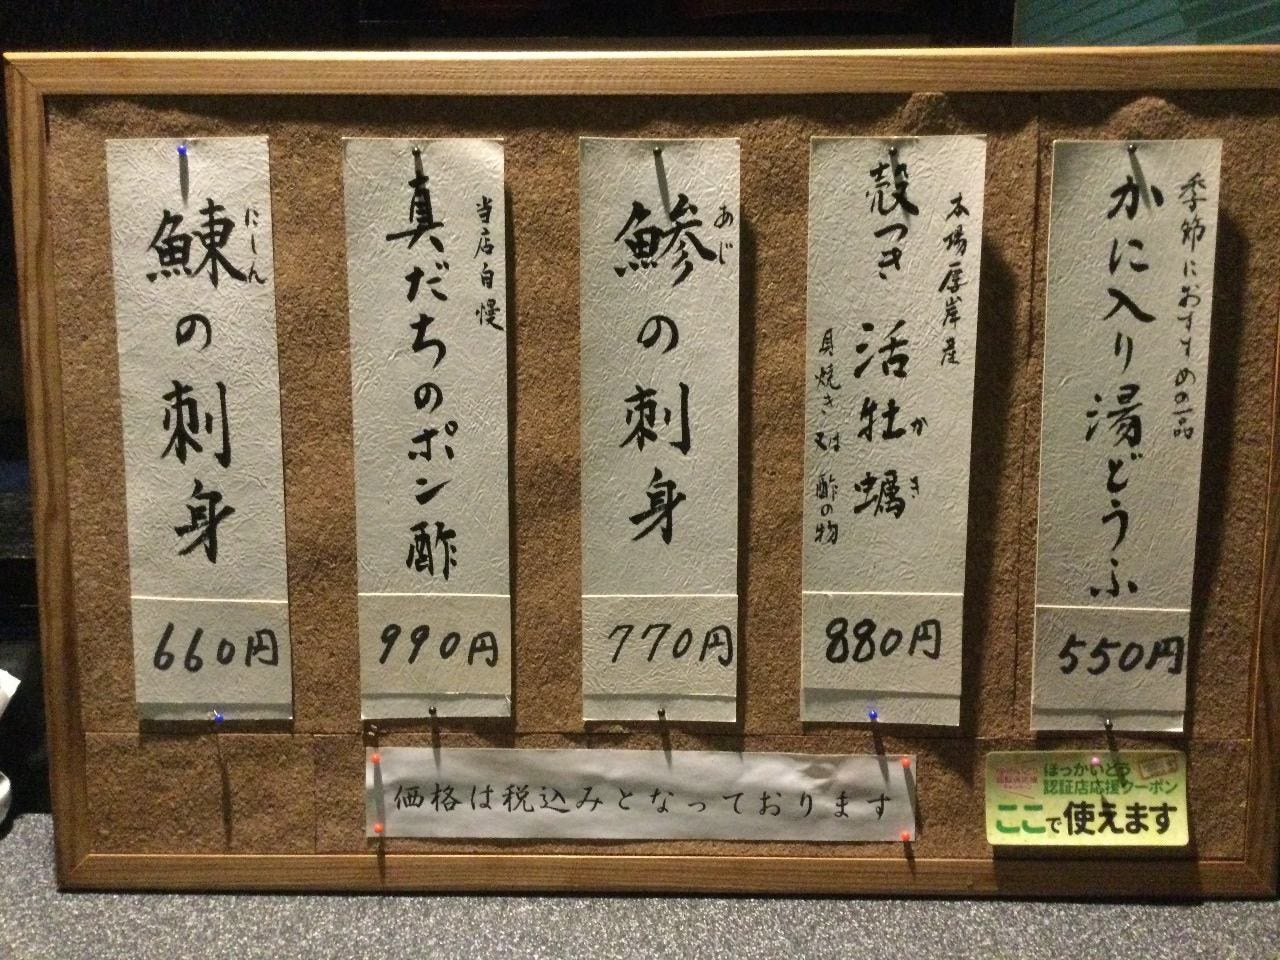 季節におすすめの一品
かに入り湯どうふ
550円
本場厚岸産
殻つき 活牡蠣
かき
貝焼き又は酢の物
880円
あじ
鯵の刺身
770円
当店自慢
真だちのポン酢
990円
にしん
鰊の刺身
660円
価格は税込みとなっております
ほっかいどう
認証店応援クーポン
ここで使えます